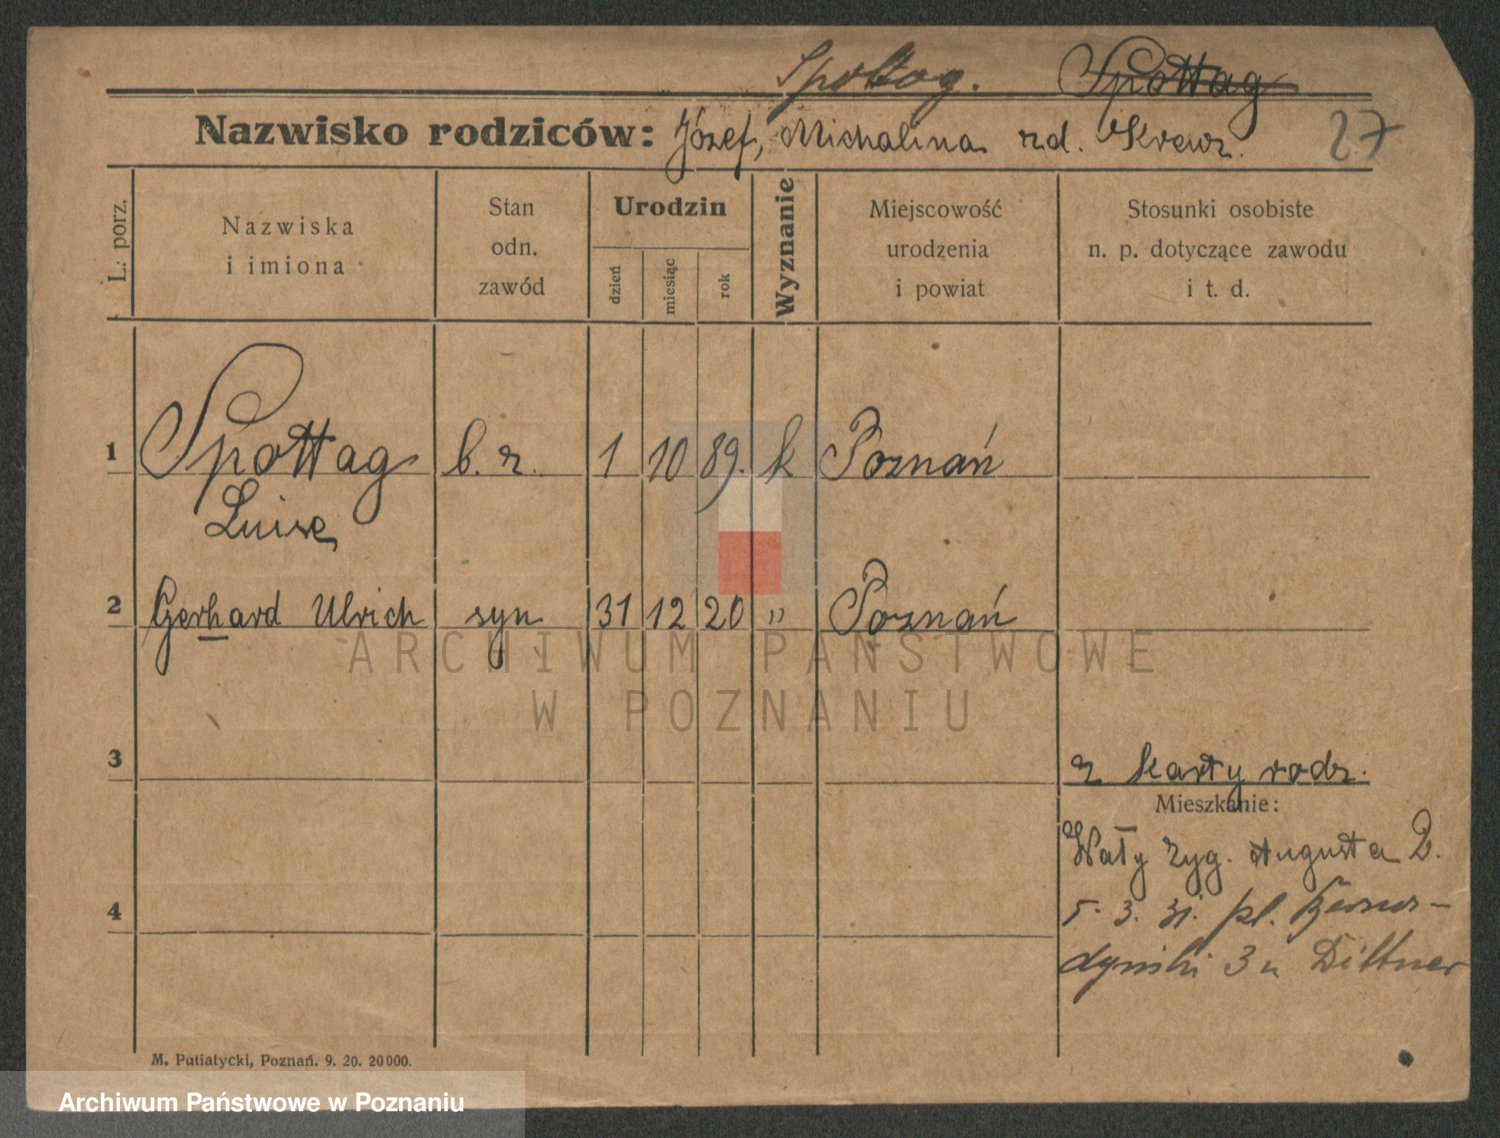 Spottag. Spottag
Nazwisko rodziców: Józef, Michalina zd. Skrewz. 27
L. porz.
Nazwiska
i imiona
Stan
odn.
zawód
Urodzin
dzień
miesiąc
rok
Wyznanie
Miejscowość
urodzenia
i powiat
Stosunki osobiste
n. p. dotyczące zawodu
i t. d.
1 Spottag b. z. 1 10 89. k Poznań
Luise
2 Gerhard Ulrich syn 31 12 20 " Poznań
ARCHIWUM PAŃSTWOWE
W POZNANIU
3 z karty rodz.
Mieszkanie:
Wały Zyg. Augusta 2.
4 5. 3. 31. pl. Bernar-
dyński 3 u Dittner
M. Putiatycki, Poznań. 9. 20. 20000.
Archiwum Państwowe w Poznaniu